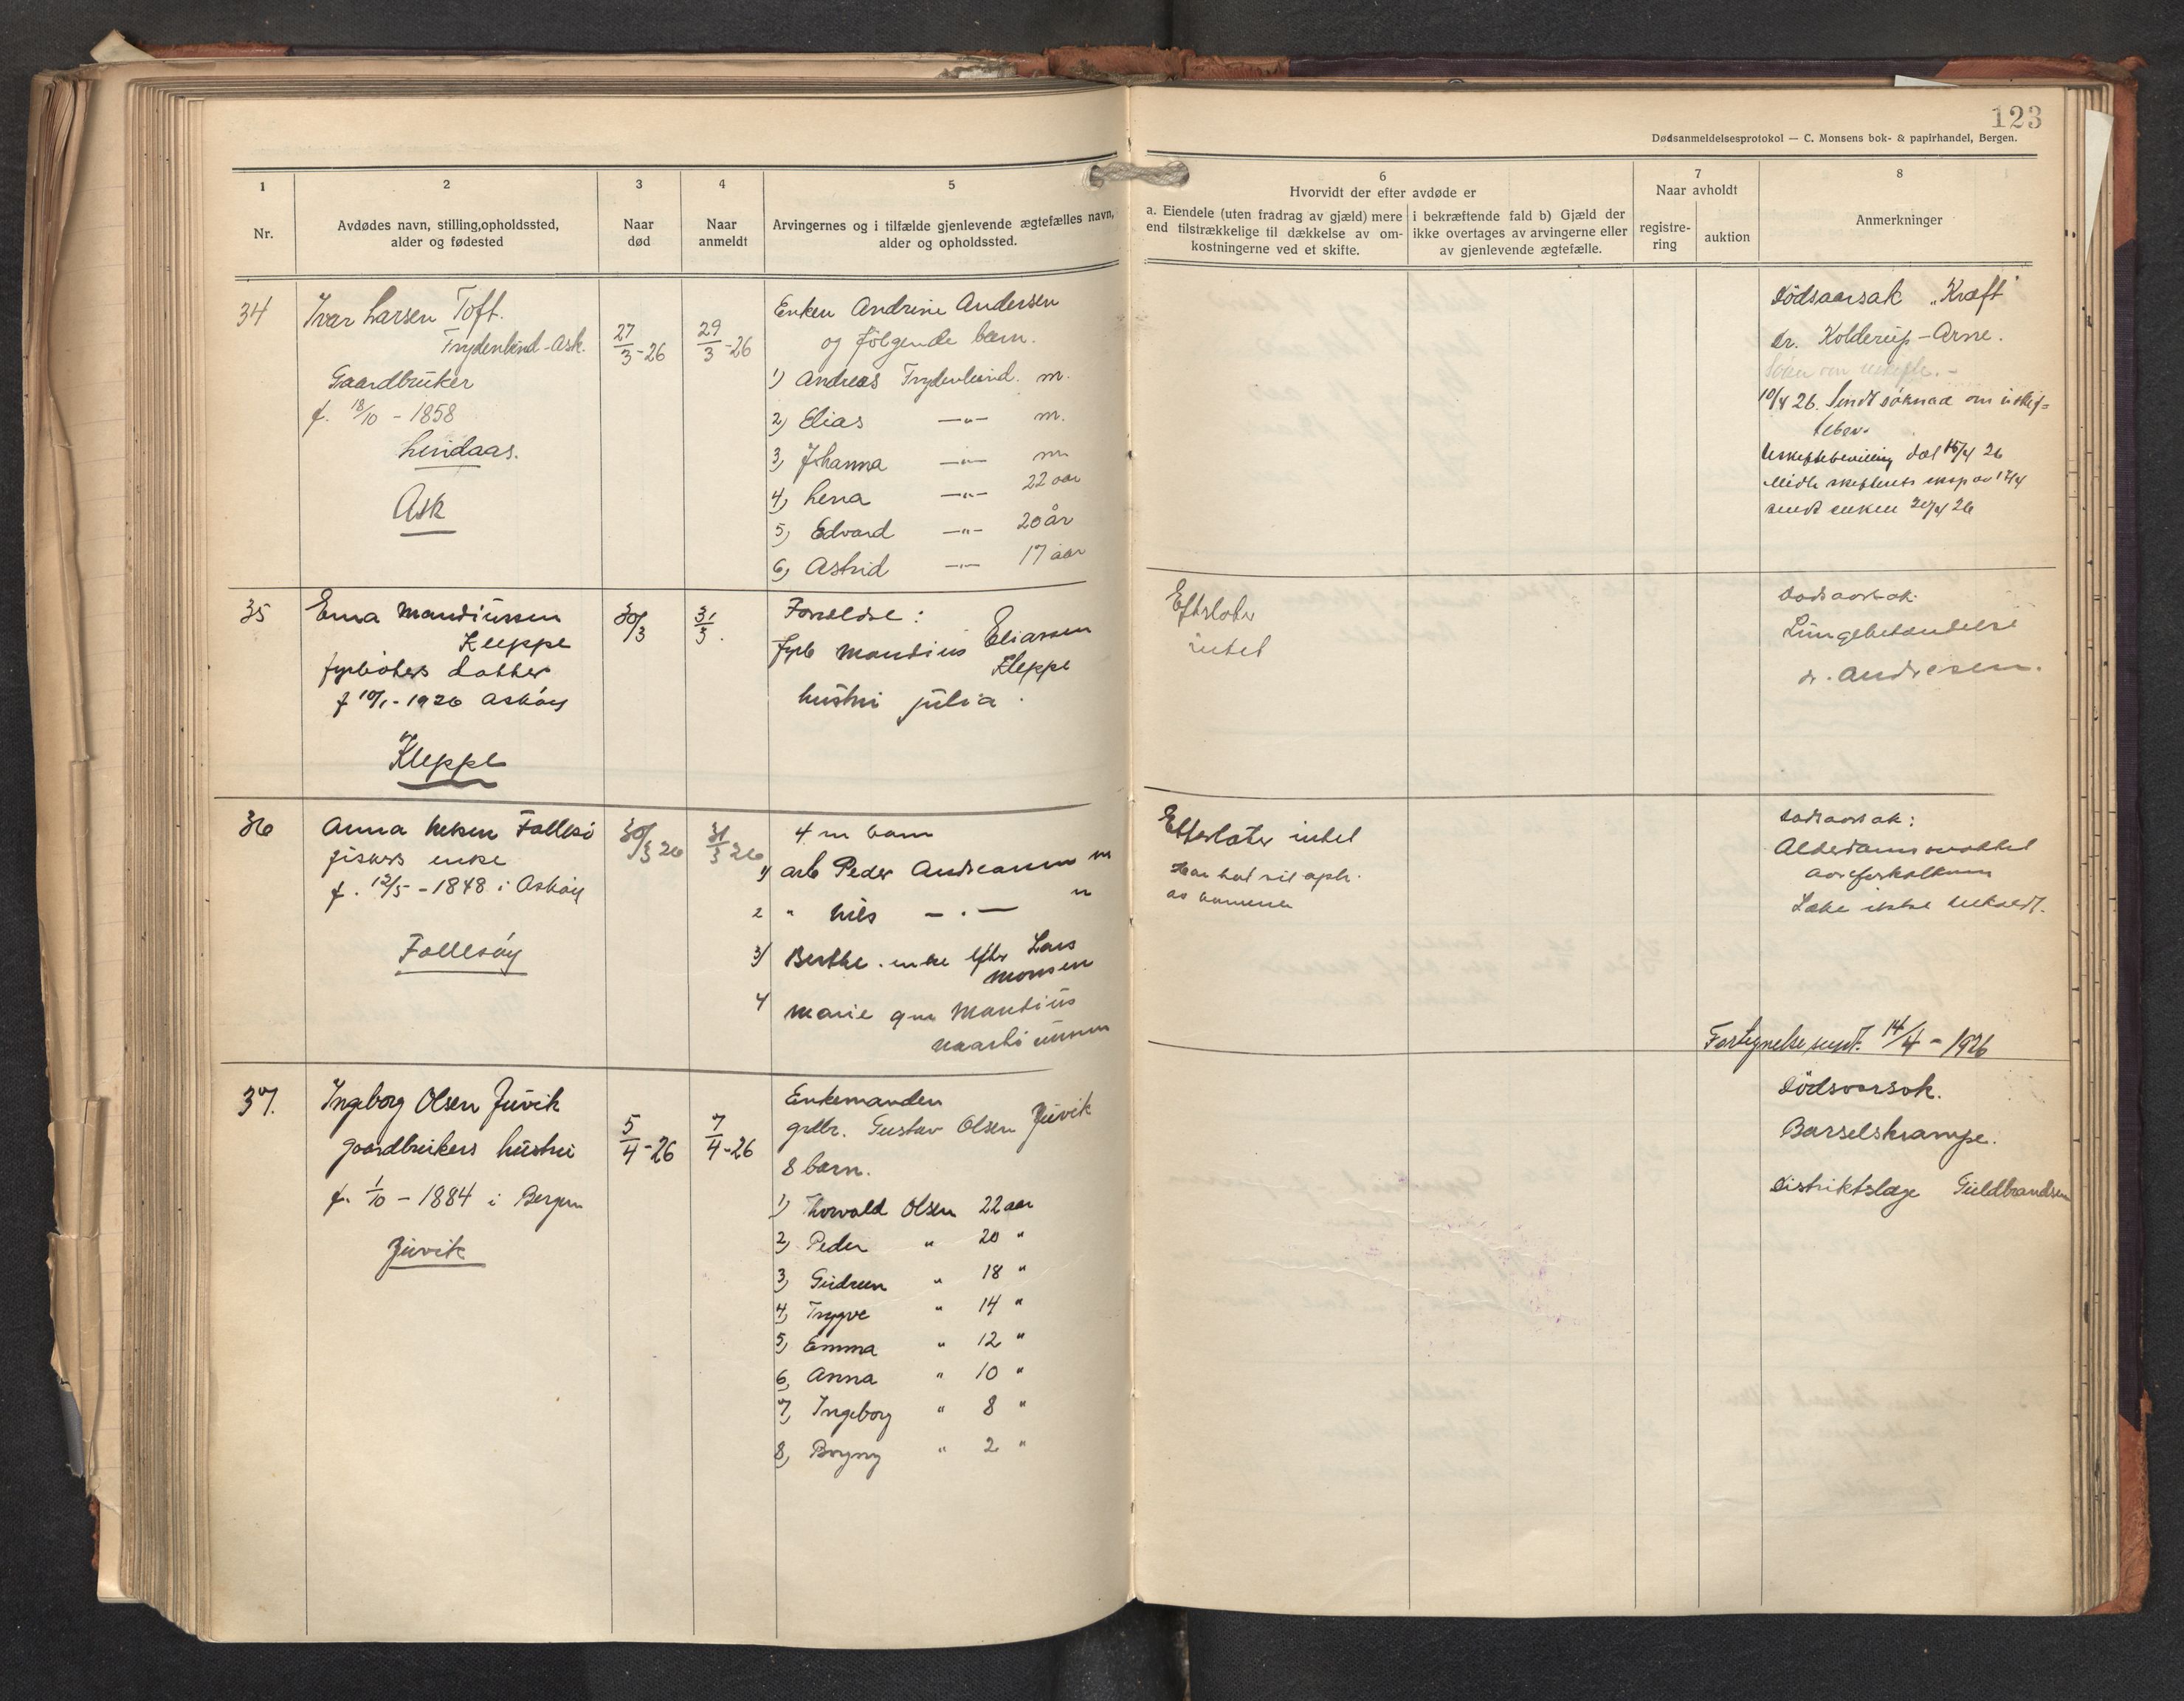 123
Dødsanmeldelsesprotokol — C. Monsens bok- & papirhandel, Bergen.
1
Nr.
2
Avdødes navn, stilling,opholdssted,
alder og fødested
3
Naar
død
4
Naar
anmeldt
5
Arvingernes og i tilfælde gjenlevende ægtefælles navn,
alder og opholdssted.
6
Hvorvidt der efter avdøde er
a. Eiendele (uten fradrag av gjæld) mere
end tilstrækkelige til dækkelse av om-
kostningerne ved et skifte.
i bekræftende fald b) Gjæld der
ikke overtages av arvingerne eller
av gjenlevende ægtefælle.
7
Naar avholdt
registre-
ring
auktion
8
Anmerkninger
34
Ivar Larsen Toft.
Frydenlund-Ask.
Gaardbruker
f. 18/10 - 1858
Lindaas.
Ask
27/3-26
29/3-26
Enken Andrine Andersen
og følgende barn.
1) Andreas Frydenlund. m.
2) Elias —"— m.
3) Johanna —"— m.
4) Lena —"— 22 aar
5) Edvard —"— 20 år
6) Astrid —"— 17 aar
Dödsaarsak "Kræft"
dr. Kolderup-Arne.
10/4 26. Sendt søknad om uskif=
tebev.
Uskiftebevilling dat 15/4 26
sendt enken 20/4 26
35
Erna Mandiussen
Kleppe
fyrbøters datter
f 10/1-1926 Askøy
Kleppe
30/3
31/3.
Forældre:
fyrb Mandius Eliassen
Kleppe
hustru Julia.
Efterlater
intet
Dødsaarsak:
Lungebetændelse
dr. Andresen.
36
Anna Nilsen Follesø
fiskers enke
f. 12/5-1848 i Askøy
Follesøy
30/3 26
31/3 26
4 m barn
1) arb Peder Andreassen m
2 " Nils —"— m
3) Berthe. enke efter Lars
Monsen
4 Marie gm Mandius
Efterlater intet
Har hat sit oph.
av barnene
Dødsaarsak:
Alderdomssvakhet
aareforkalkning
Læke ikke tilkaldt.
Fortegnelse sendt. 14/4 - 1926
37.
Ingeborg Olsen Juvik
gaardbrukers hustru
f. 1/10 - 1884 i Bergen
Juvik
5/4-26
7/4-26
Enkemanden
grdbr. Gustav Olsen Juvik
8 barn.
1) Thorvald Olsen 22 aar
2) Peder " 20 "
3) Gudrun " 18 "
4) Trygve " 14 "
5) Emma " 12 "
6, Anna " 10 "
7, Ingeborg " 8 "
8, Borgny " 2 "
Dödsaarsak.
Barselskrampe.
Distriktslæge Guldbrandsen